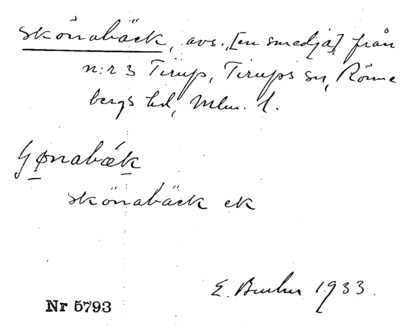 skönabäck, avs. [en smedja] från
n:r 3 Tirup, Tirups sn, Rönne
bergs hd, Mlm. l.
skönabäck ck
E. 1933.
Nr 5793